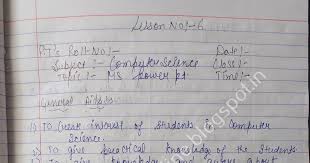 Lesson No:- 6
PT's Roll No:- Date:-
Subject :- Computer Science Class:-
Topic :- MS power pt Time:-
General Aids:-
1) To break interest of students in Computer
Science.
2) To give practical knowledge of the students
3) To give knowledge and aware about
blogspot.in